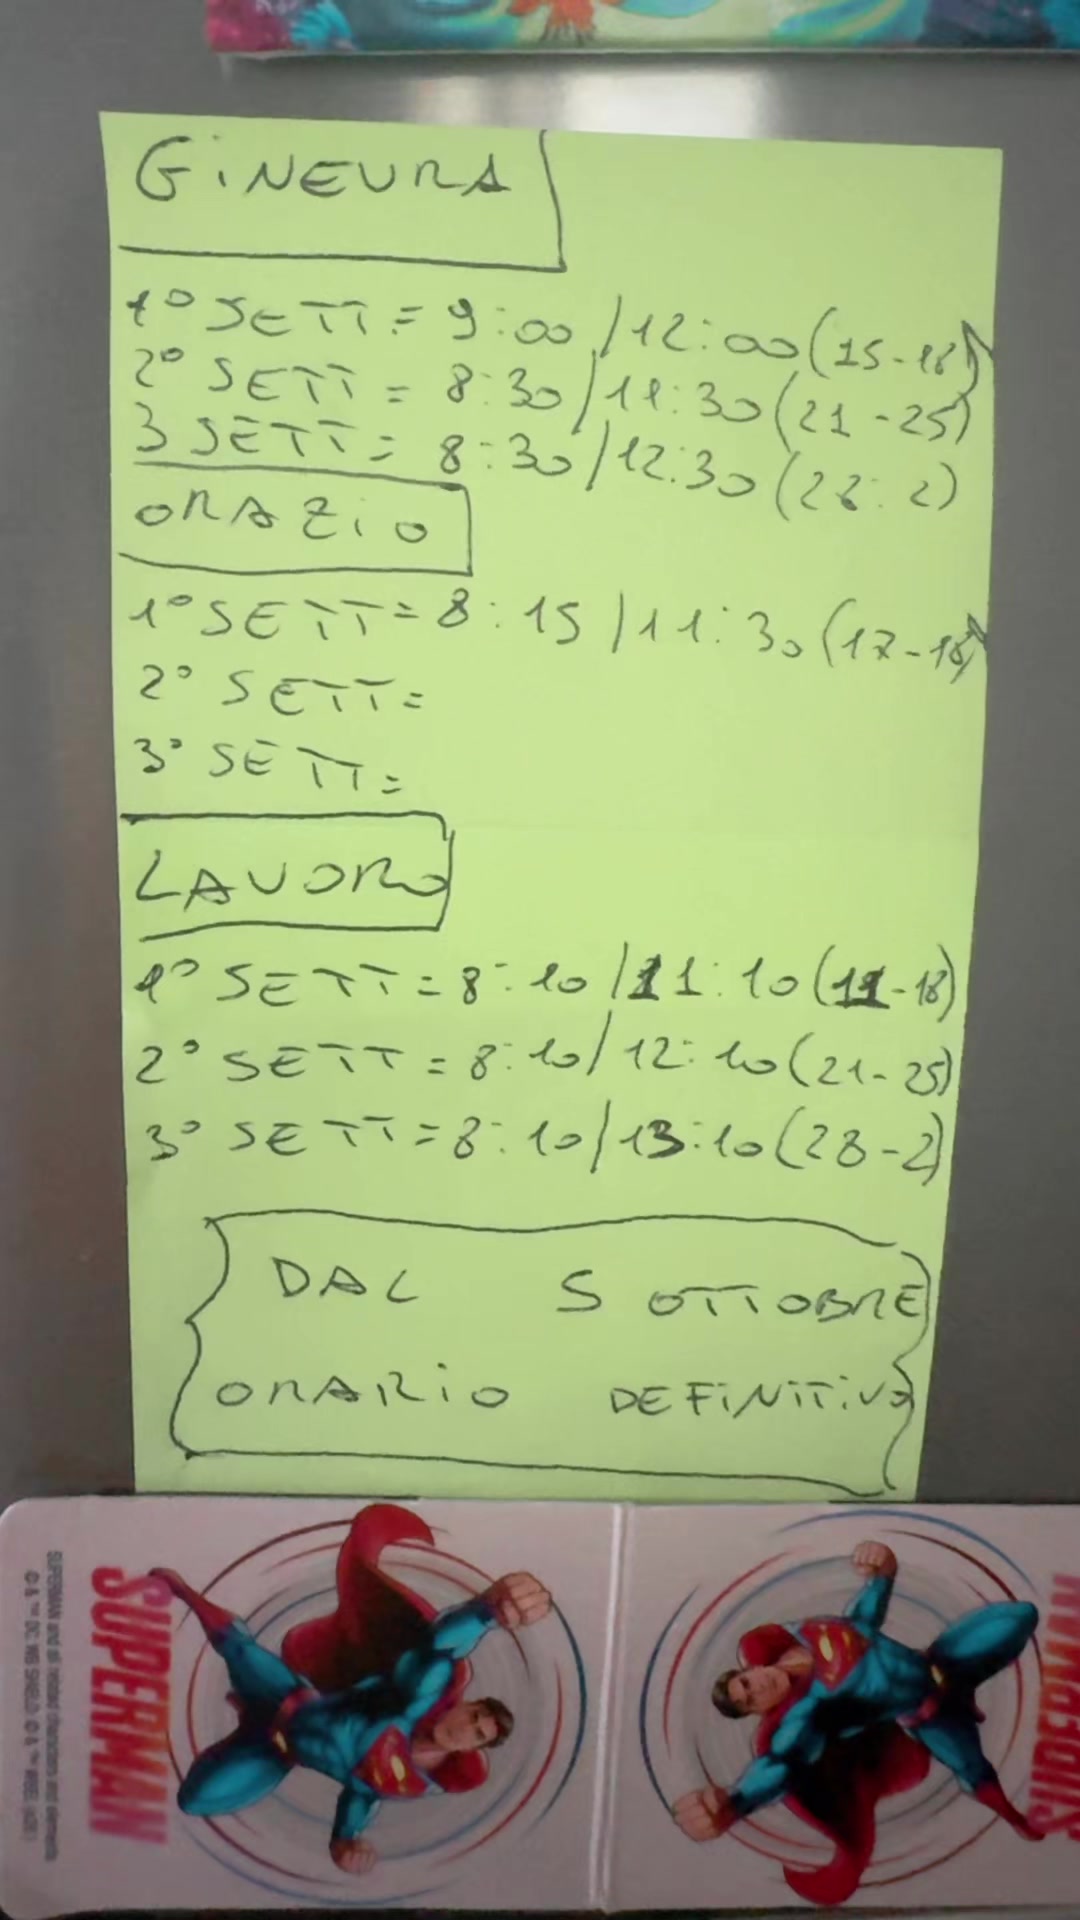 GINEVRA
1° SETT = 9:00 / 12:00 (15-18)
2° SETT = 8:30 / 11:30 (21-25)
3 SETT = 8:30 / 12:30 (28: 2)
ORAZIO
1° SETT = 8:15 / 11:30 (17-18)
2° SETT =
3° SETT =
LAVORO
1° SETT = 8:10 / 11:10 (11-18)
2° SETT = 8:10 / 12:10 (21-25)
3° SETT = 8:10 / 13:10 (28-2)
DAL 5 OTTOBRE
ORARIO DEFINITIVO
SUPERMAN
SUPERMAN and all related characters and elements